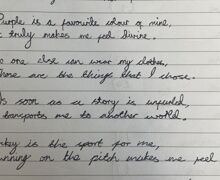 Purple is a favourite colour of mine,
truly makes me feel divine.
one else can wear my clothes,
are the things that I chose.
soon as a story is unfurled,
transports me to another world.
is the sport for me,
on the pitch makes me feel